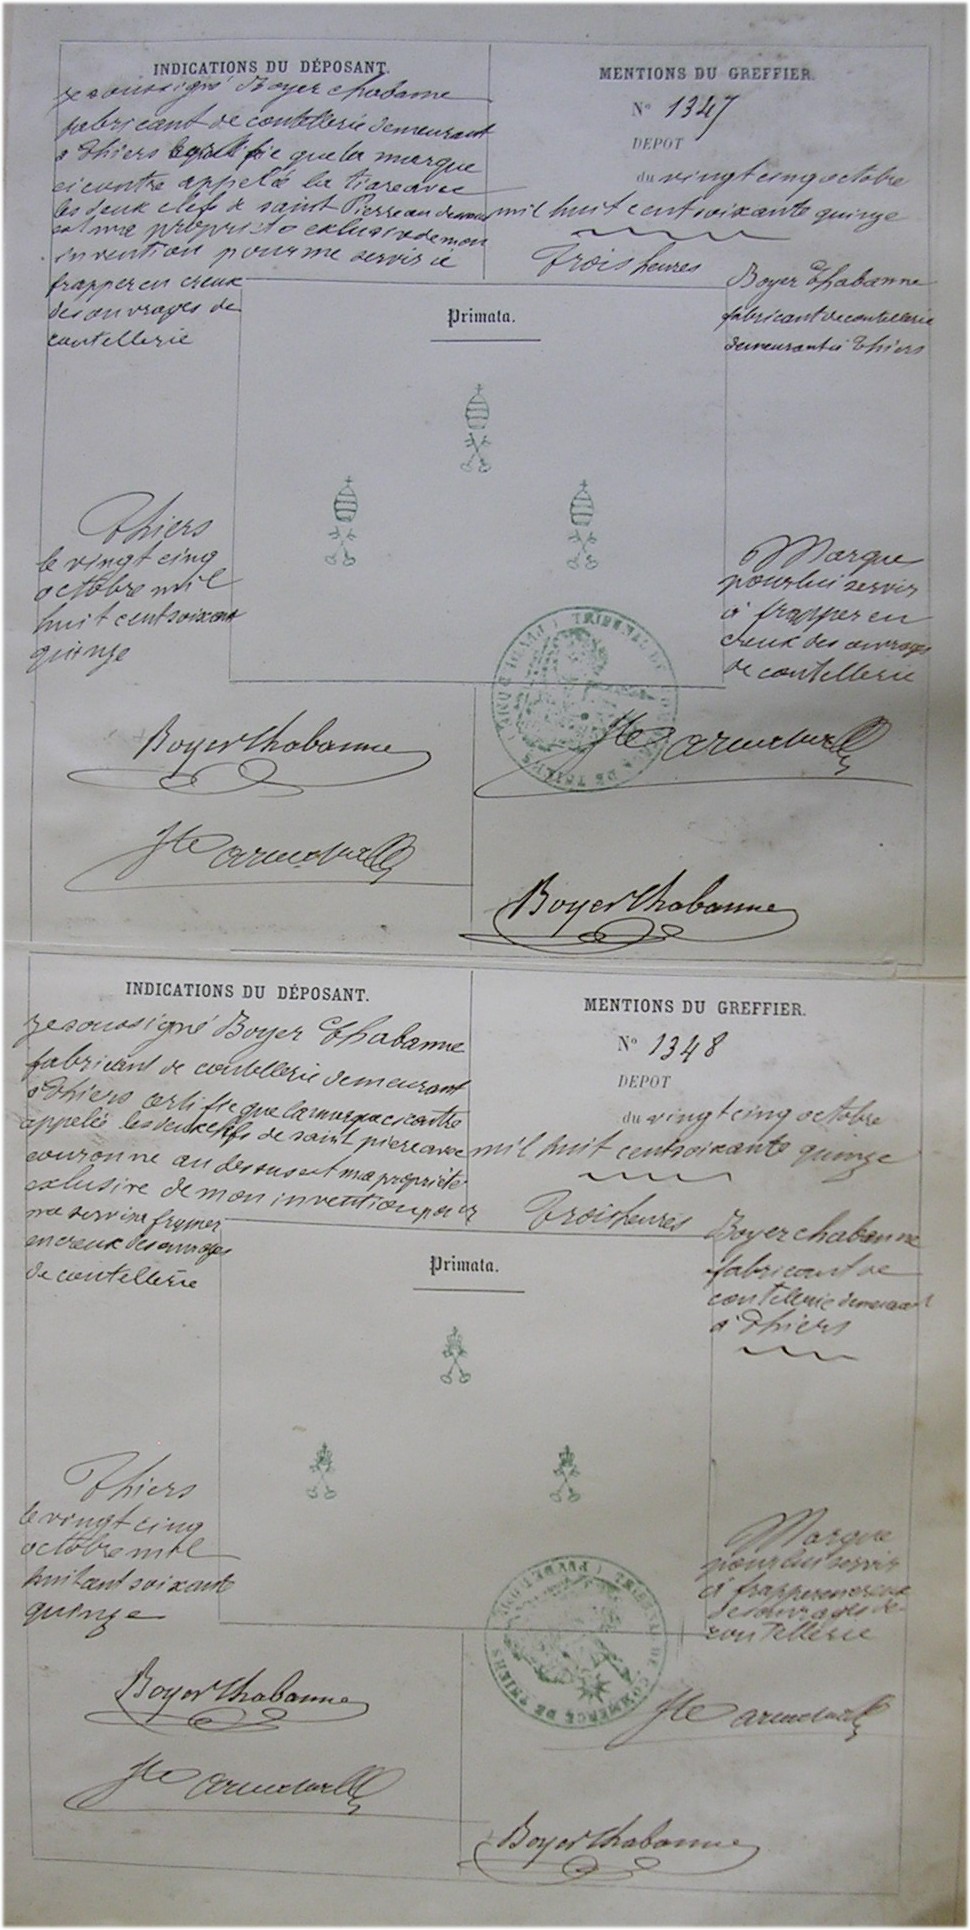 INDICATIONS DU DÉPOSANT.
Je soussigné Boyer Chabanne
fabricant de coutellerie demeurant
à Thiers que la marque
ci contre appelée la tiare avec
les deux clefs de saint Pierre au dessous
est ma propriété exclusive de mon
invention pour me servir à
frapper en creux
des ouvrages de
coutellerie
Thiers
le vingt cinq
octobre mil
huit cent soixante
quinze
MENTIONS DU GREFFIER.
N° 1347
DEPOT
du vingt cinq octobre
mil huit cent soixante quinze
trois heures
Boyer Chabanne
fabricant de coutellerie
demeurant à Thiers
Primata.
Marque
pour lui servir
à frapper en
creux des ouvrages
de coutellerie
TRIBUNAL DE DE THIERS (PUY DE DOME)
Boyer Chabanne
Boyer Chabanne
INDICATIONS DU DÉPOSANT.
Je soussigné Boyer Chabanne
fabricant de coutellerie demeurant
à Thiers certifie que la marque ci contre
appelée les deux clefs de saint pierre avec
couronne au dessus est ma propriété
exclusive de mon invention pour
me servir à fraper
en creux des ouvrages
de coutellerie
Thiers
le vingt cinq
octobre mil
huit cent soixante
quinze
MENTIONS DU GREFFIER.
N° 1348
DEPOT
du vingt cinq octobre
mil huit cent soixante quinze
trois heures
Boyer Chabanne
fabricant de
coutellerie demeurant
à Thiers
Primata.
Marque
pour lui servir
à frapper en creux
des ouvrages de
coutellerie
TRIBUNAL DE COMMERCE DE THIERS (PUY DE DOME)
Boyer Chabanne
Boyer Chabanne